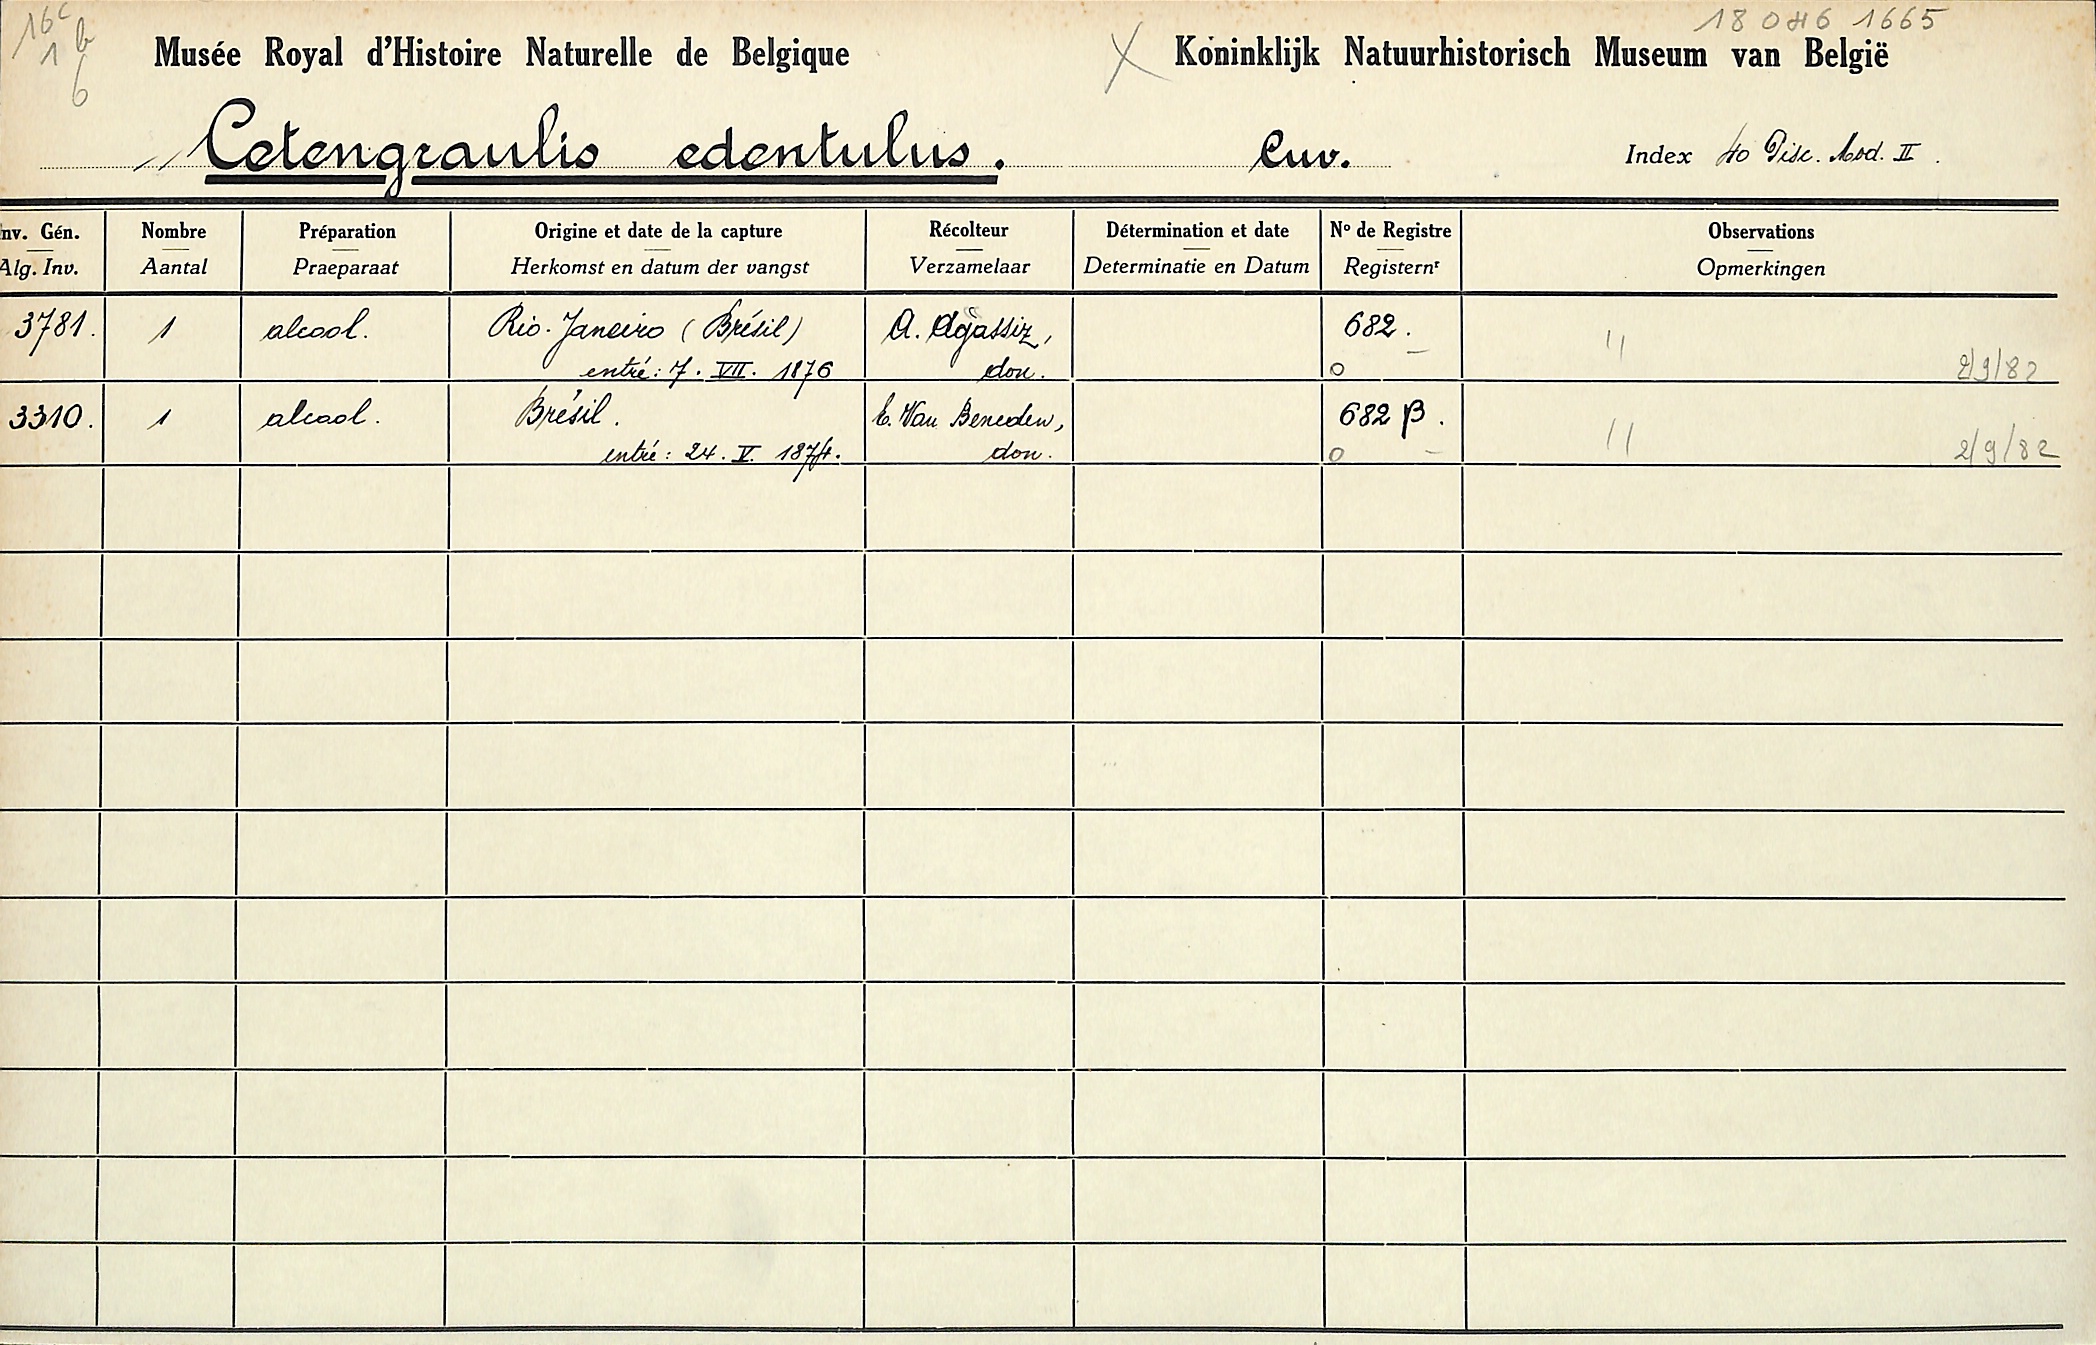 16c
1 b
6
18 046 1665
Musée Royal d'Histoire Naturelle de Belgique X Koninklijk Natuurhistorisch Museum van België
Cetengraulis edentulus. Cuv. Index 40 Pisc. Mod. II.
Inv. Gén. Nombre Préparation Origine et date de la capture Récolteur Détermination et date No de Registre Observations
Alg. Inv. Aantal Praeparaat Herkomst en datum der vangst Verzamelaar Determinatie en Datum Registernr Opmerkingen
3781. 1 alcool. Rio-Janeiro (Brésil) A. Agassiz, 682. "
entré: 7. VII. 1876 don. o - 2/9/82
3310. 1 alcool. Brésil. E. Van Beneden, 682 β. "
entré: 24. V. 1874. don. o - 2/9/82